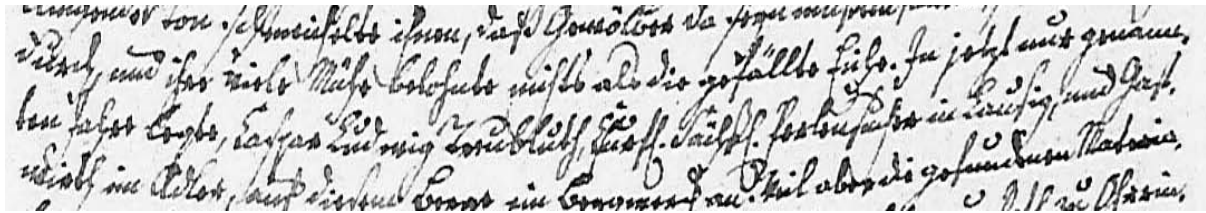 klingender Ton schmeichelte ihnen, daß Gewölber da seyn müssen
durch, und ihre viele Mühe belohnte nichts als die gefällte Eiche. In jetzt nur genann-
ten Jahre legte, Caspar Ludwig Treubluth, Churfl. Sächßl. Perlensucher in Lausig, und Gast-
wirth im Adler, auf diesem Berge ein Bergwerck an. Weil aber die gefundenen Materia-
zu